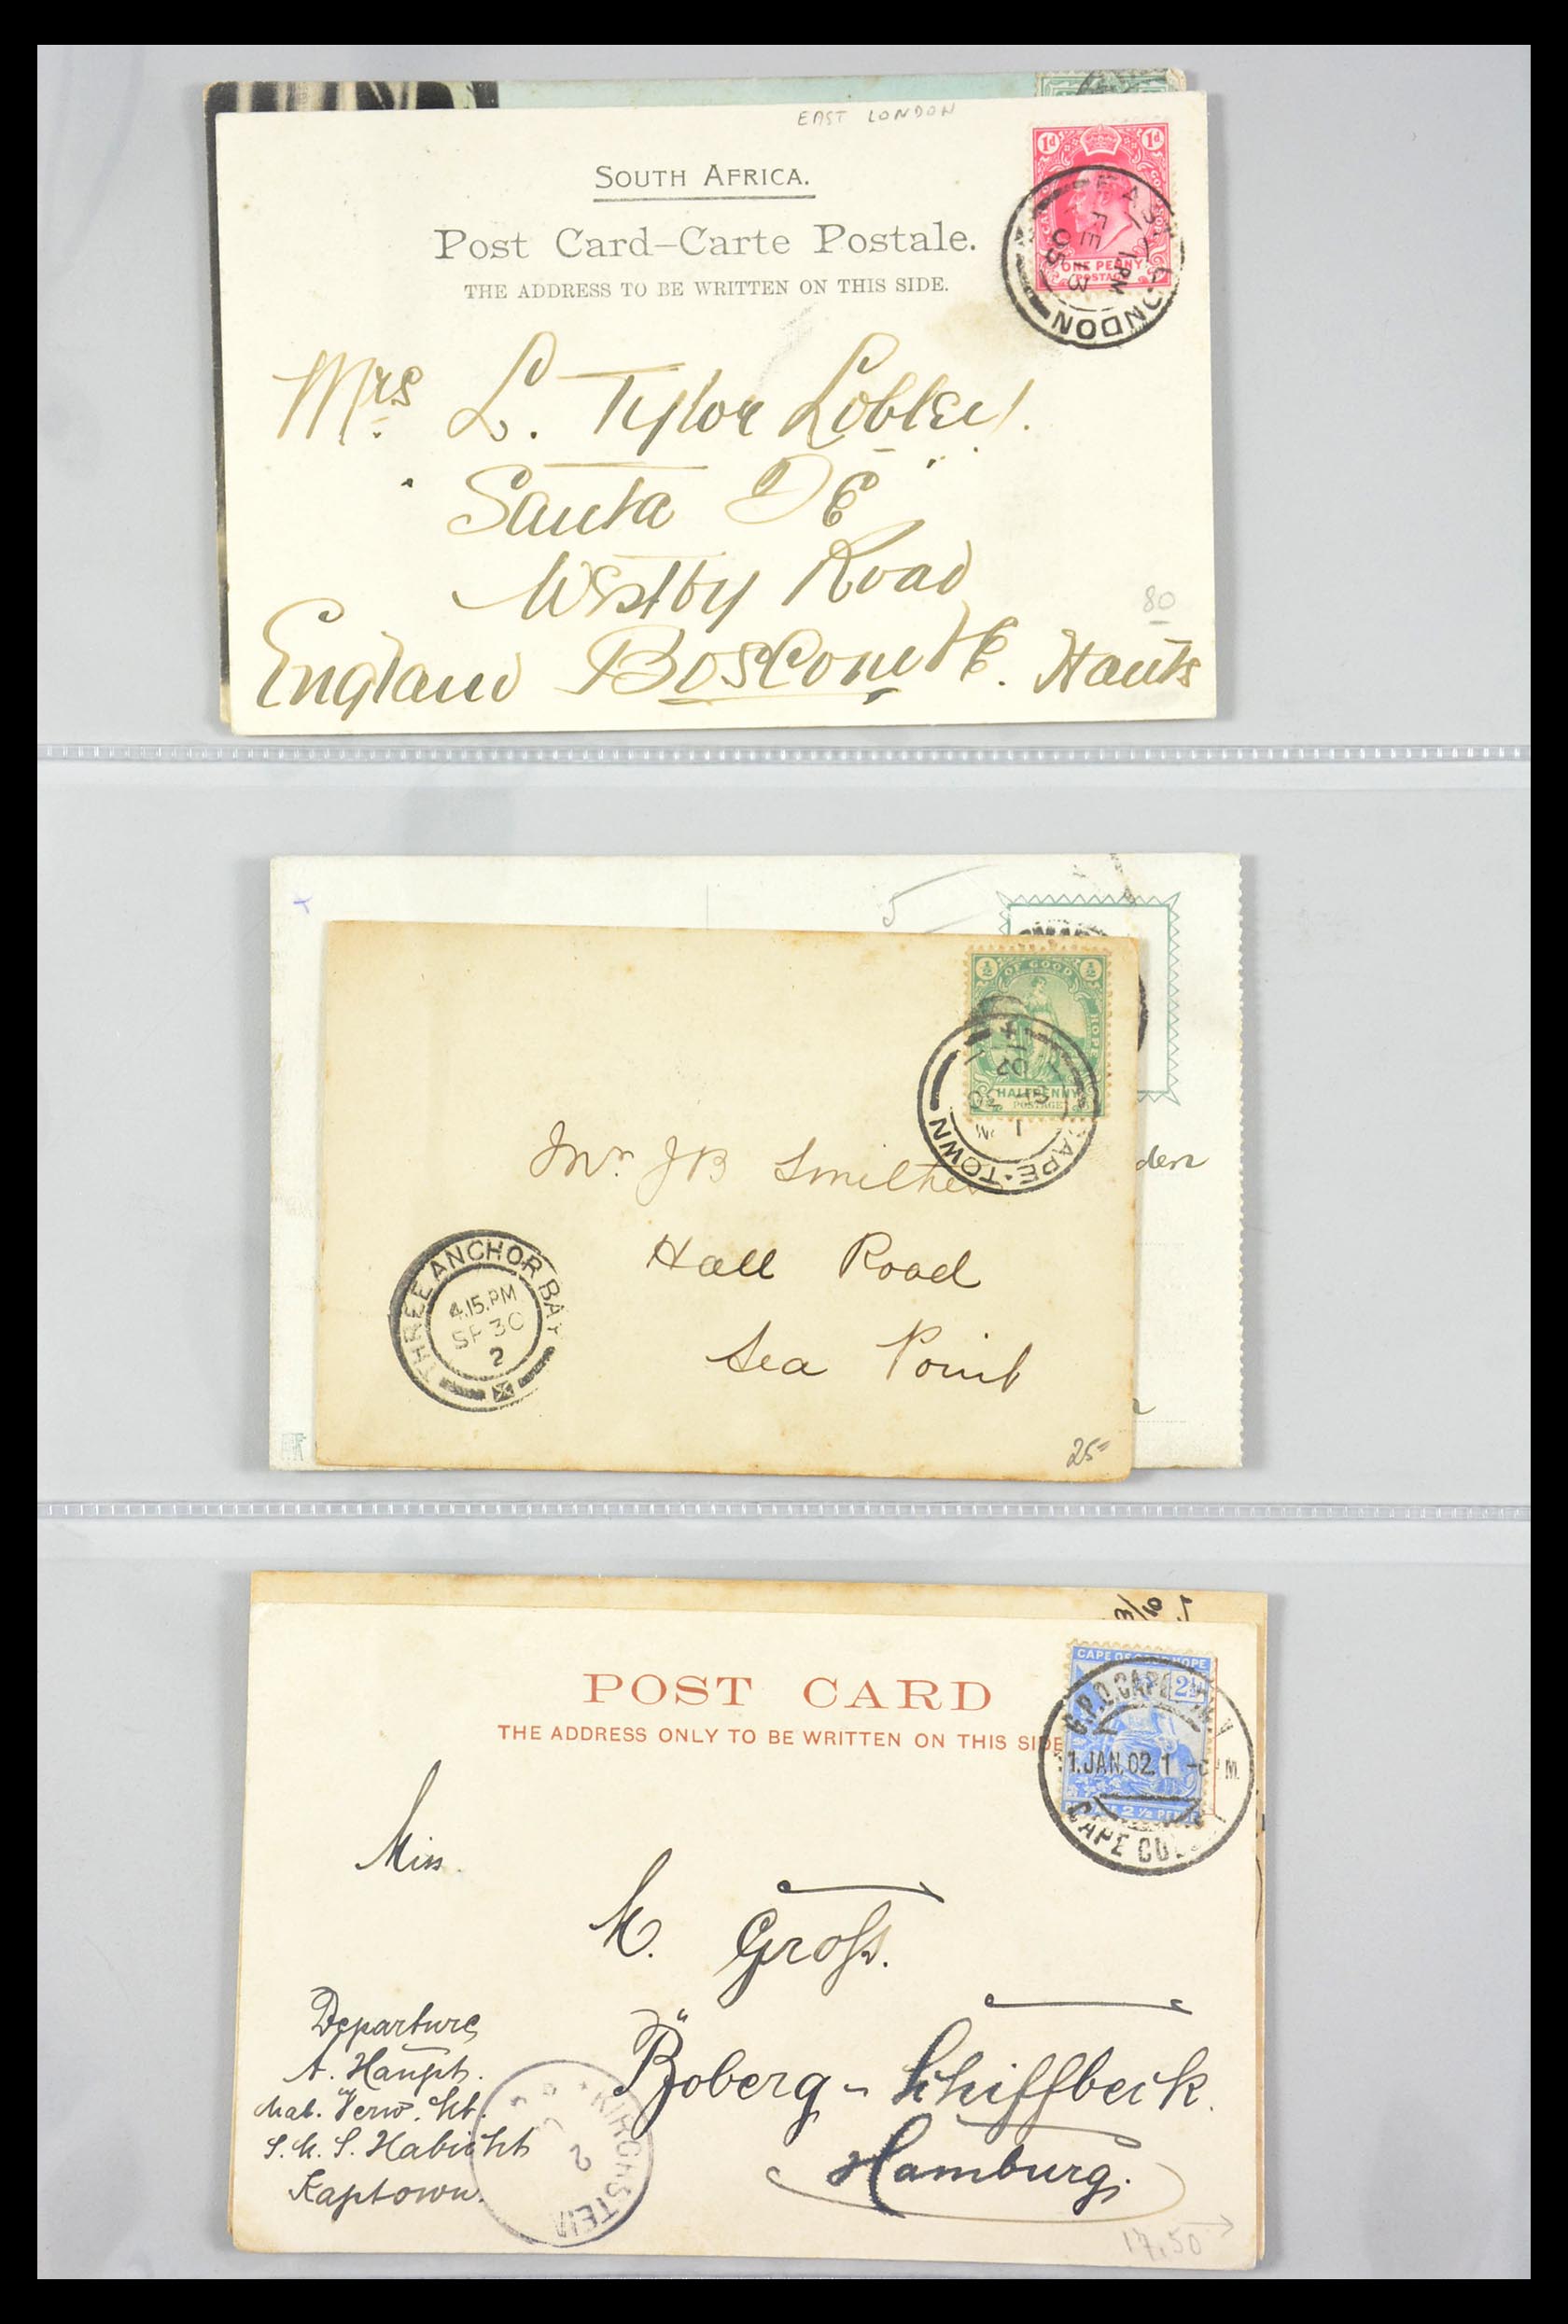 EAST LONDON
SOUTH AFRICA.
Post Card–Carte Postale.
THE ADDRESS TO BE WRITTEN ON THIS SIDE.
1d 1d
ONE PENNY
POSTAGE
LONDON
1 PM
FE 13
05
Mrs L. Tylor Lobley.
Santa Fé
Westby Road
England Boscombe. Hants
80
5
½ OF GOOD HOPE ½
HALFPENNY
POSTAGE
CAPE·TOWN
02
den
Mr. JB Smithers
Hall Road
Sea Point
THREE ANCHOR BAY
4.15.PM
SP 30
2
25
POST CARD
THE ADDRESS ONLY TO BE WRITTEN ON THIS SIDE
CAPE OF GOOD HOPE
2½
POSTAGE 2½ PENCE
G.P.O. CAPE
1.JAN.02.1 PM.
CAPE COL
Miss.
M. Gross.
Boberg - Schiffbeck.
Hamburg.
Departure
A. Haupt.
Mat. Verw. Mt.
S.M.S. Habicht
Kaptown.
KIRCHSTEI
2
17,50